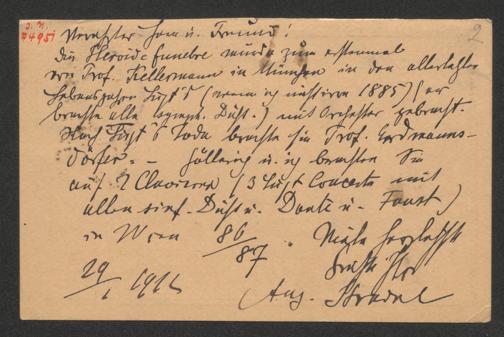 J. N.
74951
2
Verehrter Herr u. Freund!
Die Heroide funebre wurde zum erstenmal
von Prof. Kellermann in München in den allerletzten
Lebensjahren Liszt's (wenn ich nicht irre 1885) (er
brachte alle symph. Dicht.) mit Orchester gebracht.
Nach Liszt's Tode brachte sie Prof. Erdmanns-
dörfer. – Göllerich u. ich brachten Sie
auf 2 Clavieren (3 Liszt Concerte mit
allen sinf. Dicht u. Dante u. Faust)
in Wien 86/87. Viele herzlichste
Grüße Ihr
29/1 1911
Aug. Stradal